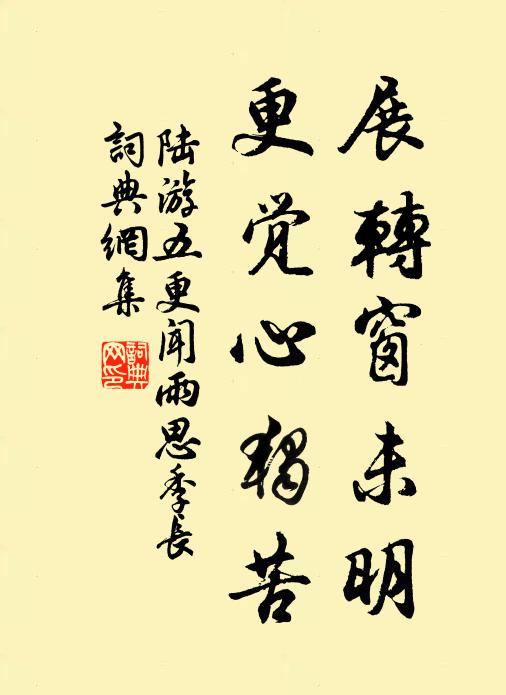 展轉窗未明
更觉心獨苦
陆游五更闻雨思季长
詞典網集
詞典网印